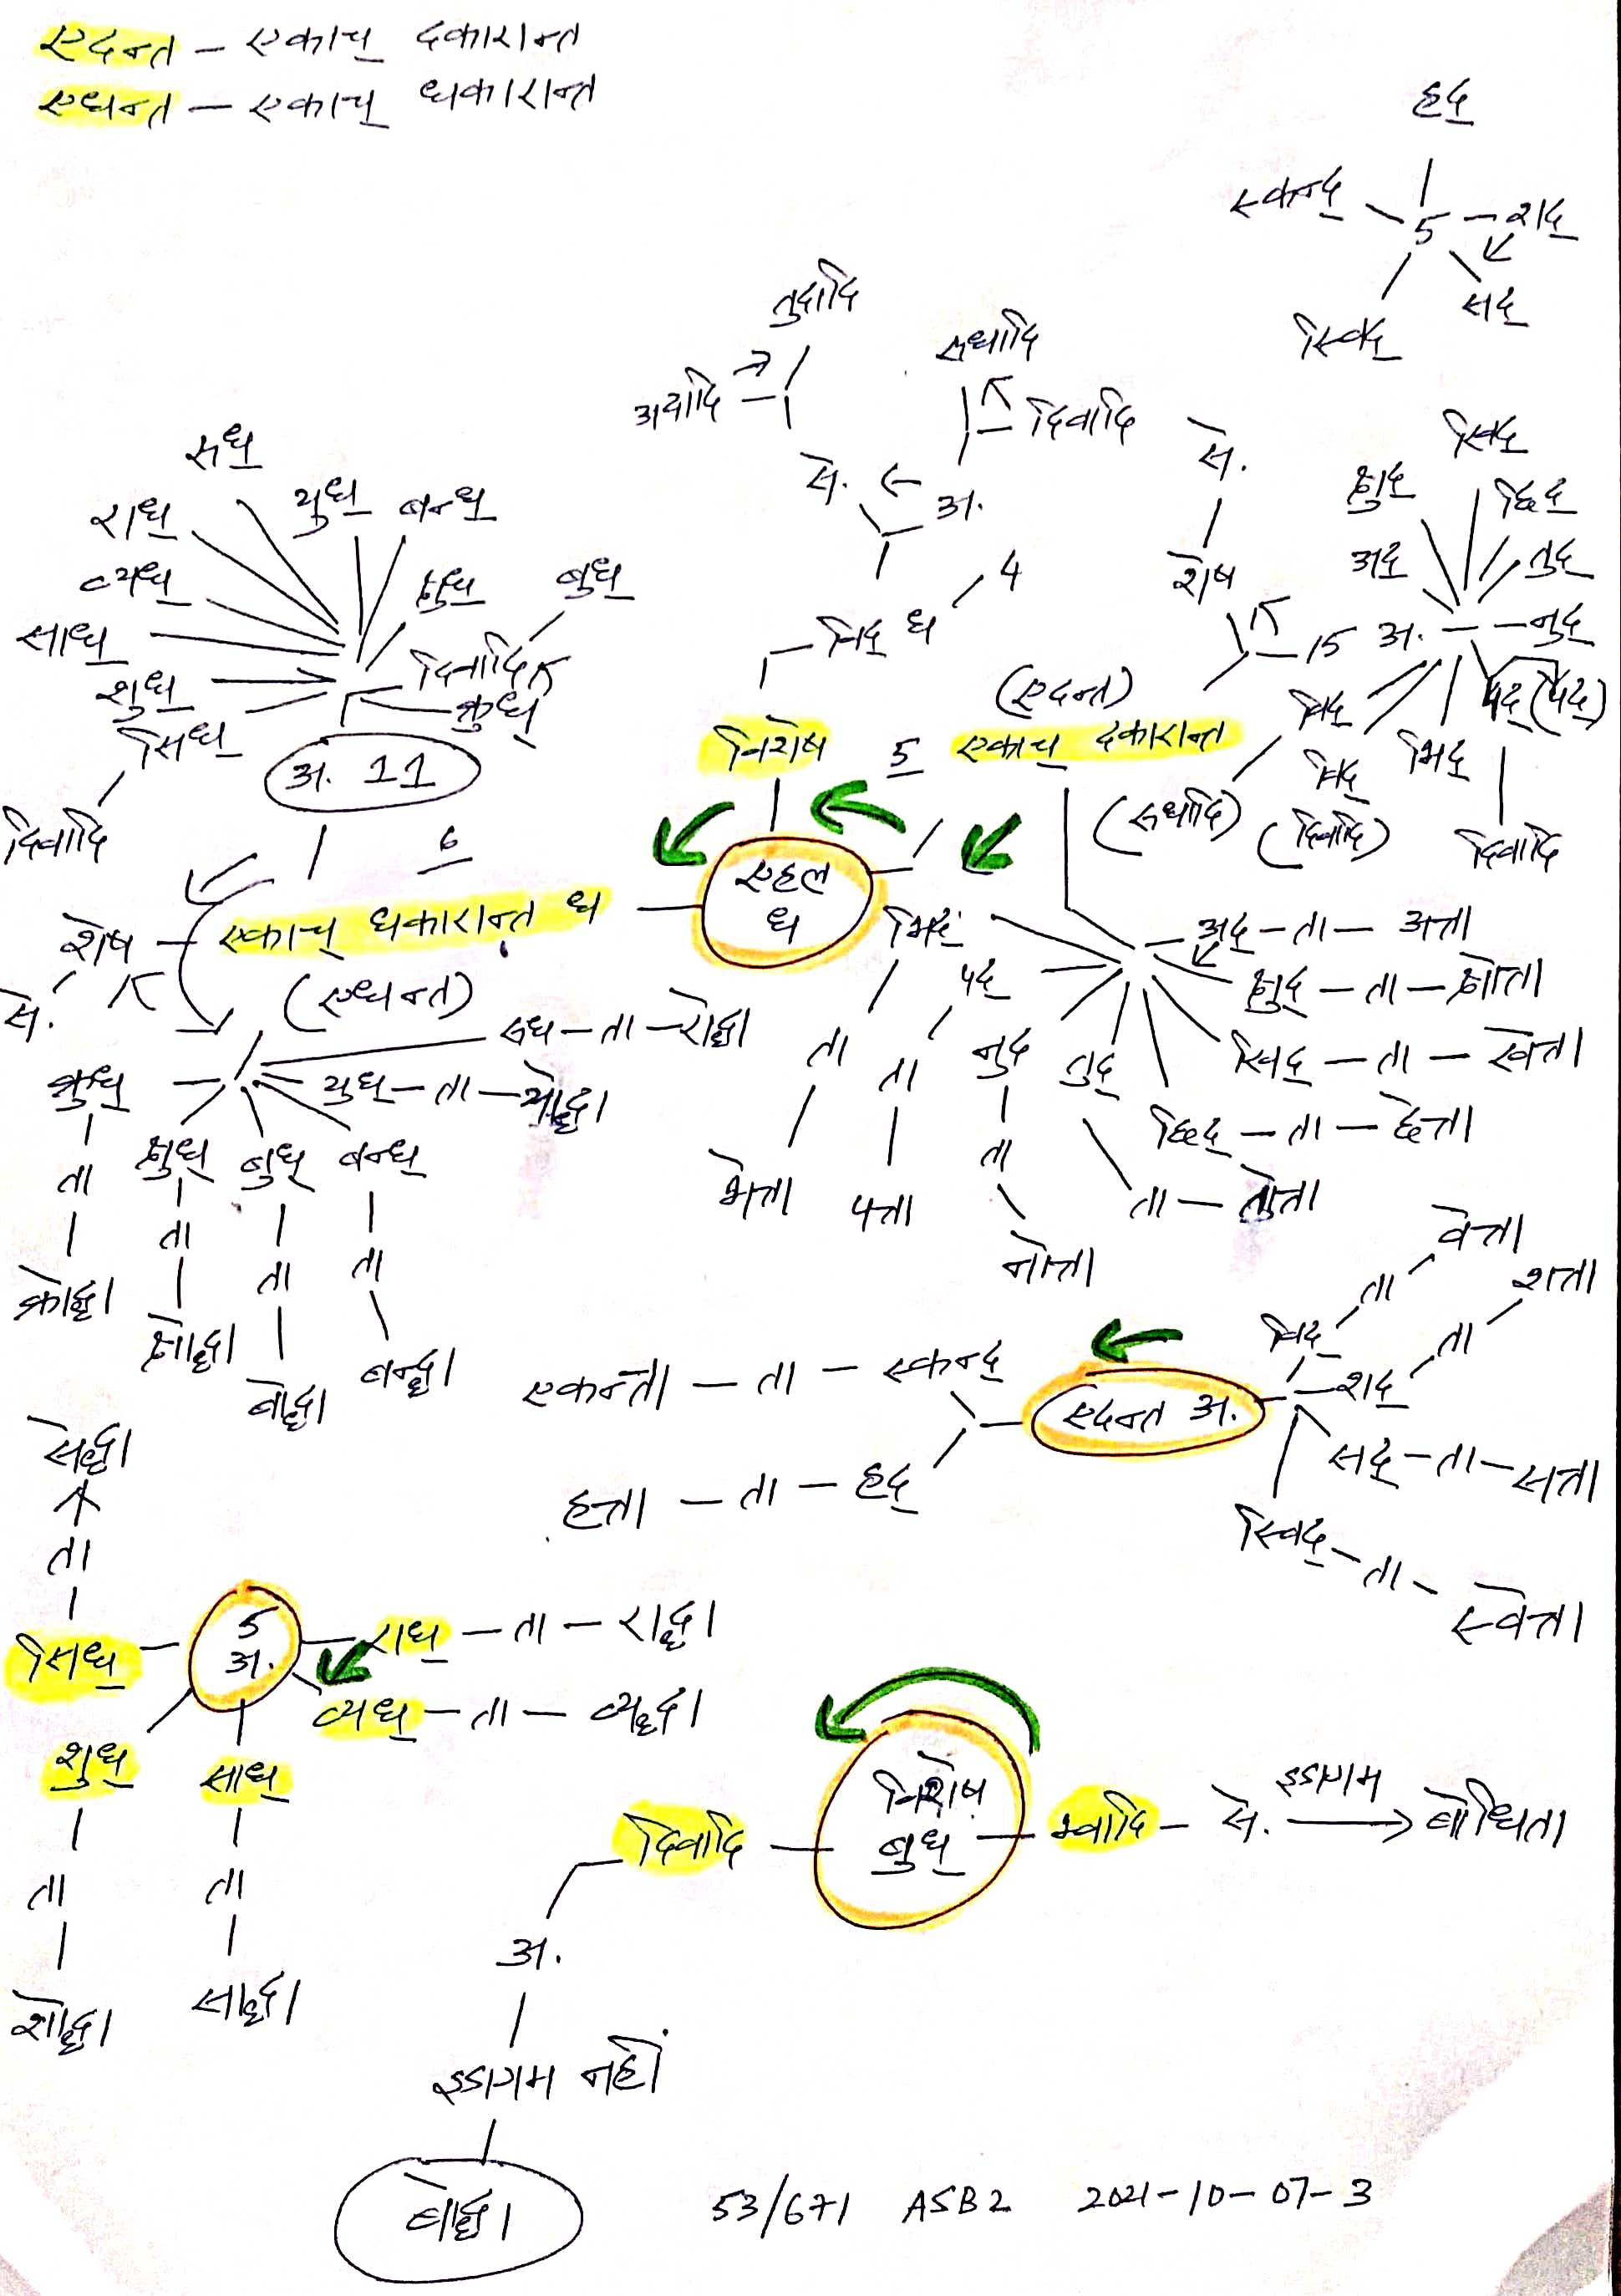 एदन्त – एकाच् दकारान्त
एधन्त – एकाच् धकारान्त
हद्
स्कन्द्
5
शद्
सद्
स्विद्
तुदादि
अदादि
रुधादि
दिवादि
से.
अ.
विद् ध
4
विशेष
से.
शेष
15
अ.
स्विद्
क्षुद्
छिद्
अद्
तुद्
नुद्
पद् (पद्)
भिद्
विद्
विद्
(रुधादि)
(दिवादि)
दिवादि
(एदन्त)
5 एकाच् दकारान्त
रुध्
राध्
युध्
बन्ध्
व्यध्
क्षुध्
बुध्
साध्
दिवादि
शुध्
क्रुध्
सिध्
दिवादि
अ. 11
6
शेष – एकाच् धकारान्त ध
(एधन्त)
से.
एहल
ध
रुध – ता – रोद्धा
युध् – ता – योद्धा
क्रुध्
ता
क्रोद्धा
क्षुध्
ता
क्षोद्धा
बुध्
ता
बोद्धा
बन्ध्
ता
बन्द्धा
भिद्
ता
भेत्ता
पद्
ता
पत्ता
नुद्
ता
नोत्ता
तुद्
ता – तोत्ता
अद् – ता – अत्ता
क्षुद् – ता – क्षोत्ता
खिद् – ता – खेत्ता
छिद् – ता – छेत्ता
स्कन्ता – ता – स्कन्द्
हत्ता – ता – हद्
एदन्त अ.
विद्
ता
वेत्ता
शद्
ता
शत्ता
सद् – ता – सत्ता
स्विद् – ता – स्वेत्ता
सेद्धा
ता
सिध्
5
अ.
राध् – ता – राद्धा
व्यध् – ता – व्यद्धा
शुध्
ता
शोद्धा
साध्
ता
साद्धा
दिवादि
विशेष
बुध्
भ्वादि – से. इडागम बोधिता
अ.
इडागम नहीं
बोद्धा
53/671 ASB2 2021-10-07-3